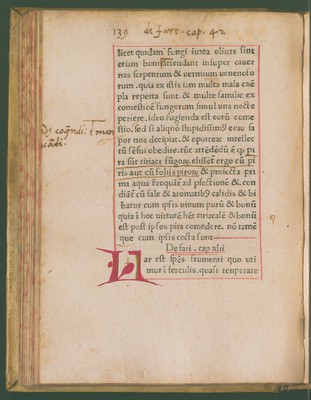 139 de farre . cap . 42
licet quidam fungi iuxta oliuas sint
etium boni: attendent insuper cauer
nas serpentum & uermium uenenoso
rum . quia ex istis iam multa mala exē
pla reperta sunt . & multe familie ex
comestiōe fungorum simul una nocte
periere . ideo fugienda est eorū come
stio . sed si aliqnō stupidissimū eorū sa
por nos decipiat . & oporteat intellec
tū sēsui obedire . tūc attēdēdū ē
ra sūt tiriaca fūgoꝝ . elixent ergo cū pi
ris aut cū foliis piroꝝ & proiecta pri
ma aqua
diāt cū sale & aromatibꝫ calidis & bi
batur cum ipsis uinum purū & bonū
quia ī hoc uirtutē hēt tiriacalē & bonū
est post ipsos pira comedere . nō tamē
que cum ipsis cocta sunt
De fari . cap xlii
Far est spēs frumenti quo uti
mur ī ferculis . quasi temperate